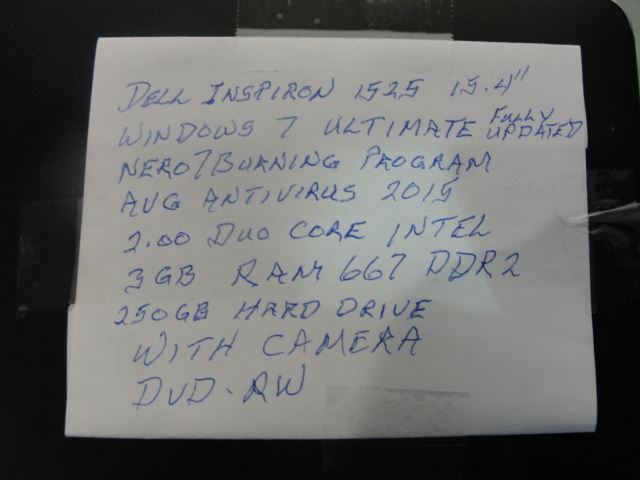 DELL INSPIRON 1525 15.4"
WINDOWS 7 ULTIMATE FULLY UPDATED
NERO7BURNING PROGRAM
AVG ANTIVIRUS 2015
2.00 DUO CORE INTEL
3GB RAM 667 DDR2
250GB HARD DRIVE
WITH CAMERA
DVD-RW